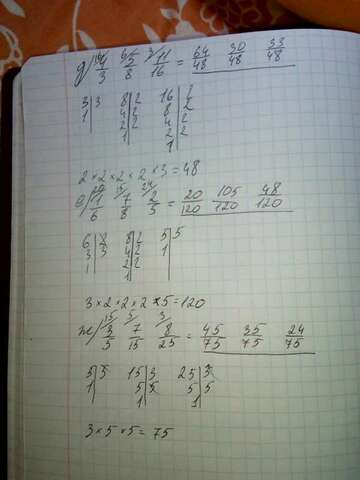 д) 16/ 6/ 3/
4/3 5/8 11/16 = 64/48 30/48 33/48
3|3 8|2 16|2
1| 4|2 8|2
2|2 4|2
1| 2|2
1|
2×2×2×2×3=48
е) 20/ 15/ 24/
1/6 7/8 2/5 = 20/120 105/120 48/120
6|2 8|2 5|5
3|3 4|2 1|
1| 2|2
1|
3×2×2×2×5=120
ж) 15/ 5/ 3/
3/5 7/15 8/25 = 45/75 35/75 24/75
5|5 15|3 25|5
1| 5|5 5|5
1| 1|
3×5×5=75